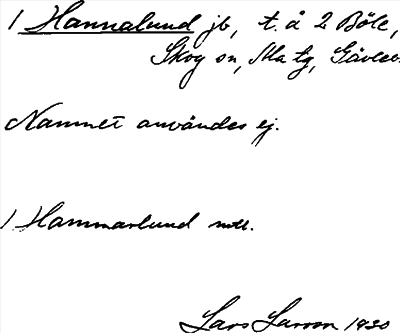 1 Hannalund jb, t. å 2 Böle,
Skog sn, Ala tg, Gävleb.
Namnet användes ej.
1 Hammarlund
Lars Larson 1930